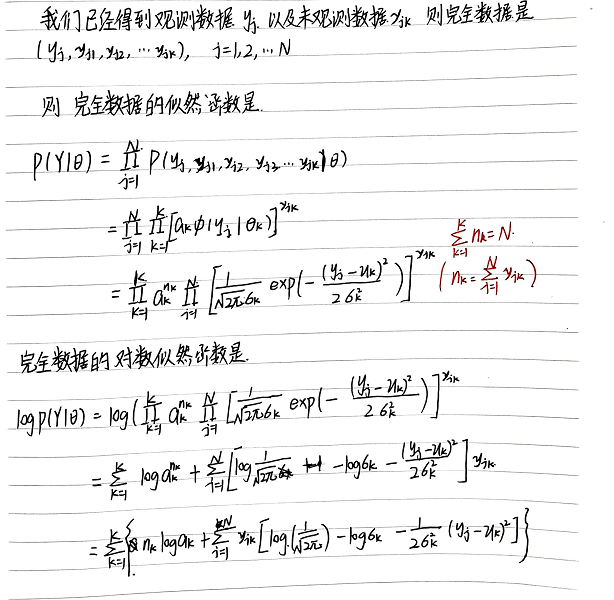 我们已经得到观测数据 yj 以及未观测数据 γjk 则完全数据是
(yj, γj1, γj2, … γjk), j=1,2,…N
则 完全数据的似然函数是.
P(Y|θ) = ∏_{j=1}^{N} P(yj, γj1, γj2, γj3 … γjk|θ)
= ∏_{j=1}^{N} ∏_{k=1}^{K} [ak φ(yj|θk)]^{γjk}
∑_{k=1}^{K} nk = N.
= ∏_{k=1}^{K} ak^{nk} ∏_{j=1}^{N} [1/(√2π σk) exp(-(yj-uk)²/2σk²)]^{γjk} (nk = ∑_{j=1}^{N} γjk)
完全数据的对数似然函数是.
log P(Y|θ) = log(∏_{k=1}^{K} ak^{nk} ∏_{j=1}^{N} [1/(√2π σk) exp(-(yj-uk)²/2σk²)]^{γjk}
= ∑_{k=1}^{K} log ak^{nk} + ∑_{j=1}^{N} [log 1/√2π - logσk - (yj-uk)²/2σk²] γjk.
= ∑_{k=1}^{K} {nk log ak + ∑_{j=1}^{N} γjk [log(1/√2π) - logσk - 1/2σk² (yj-uk)²]}